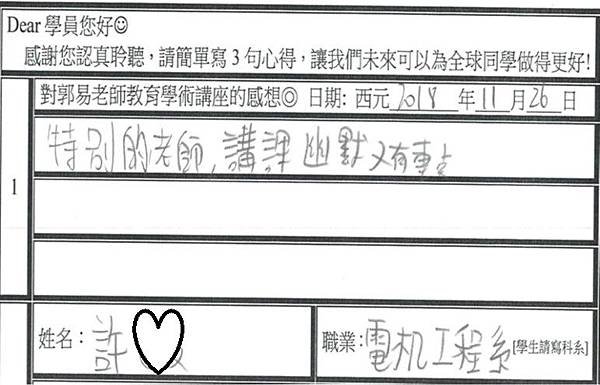 Dear 學員您好☺
感謝您認真聆聽，請簡單寫 3 句心得，讓我們未來可以為全球同學做得更好!
對郭易老師教育學術講座的感想◎ 日期: 西元 2018 年 11 月 26 日
1
特別的老師, 講課幽默又有重点
姓名：許
職業：電机工程系 [學生請寫科系]